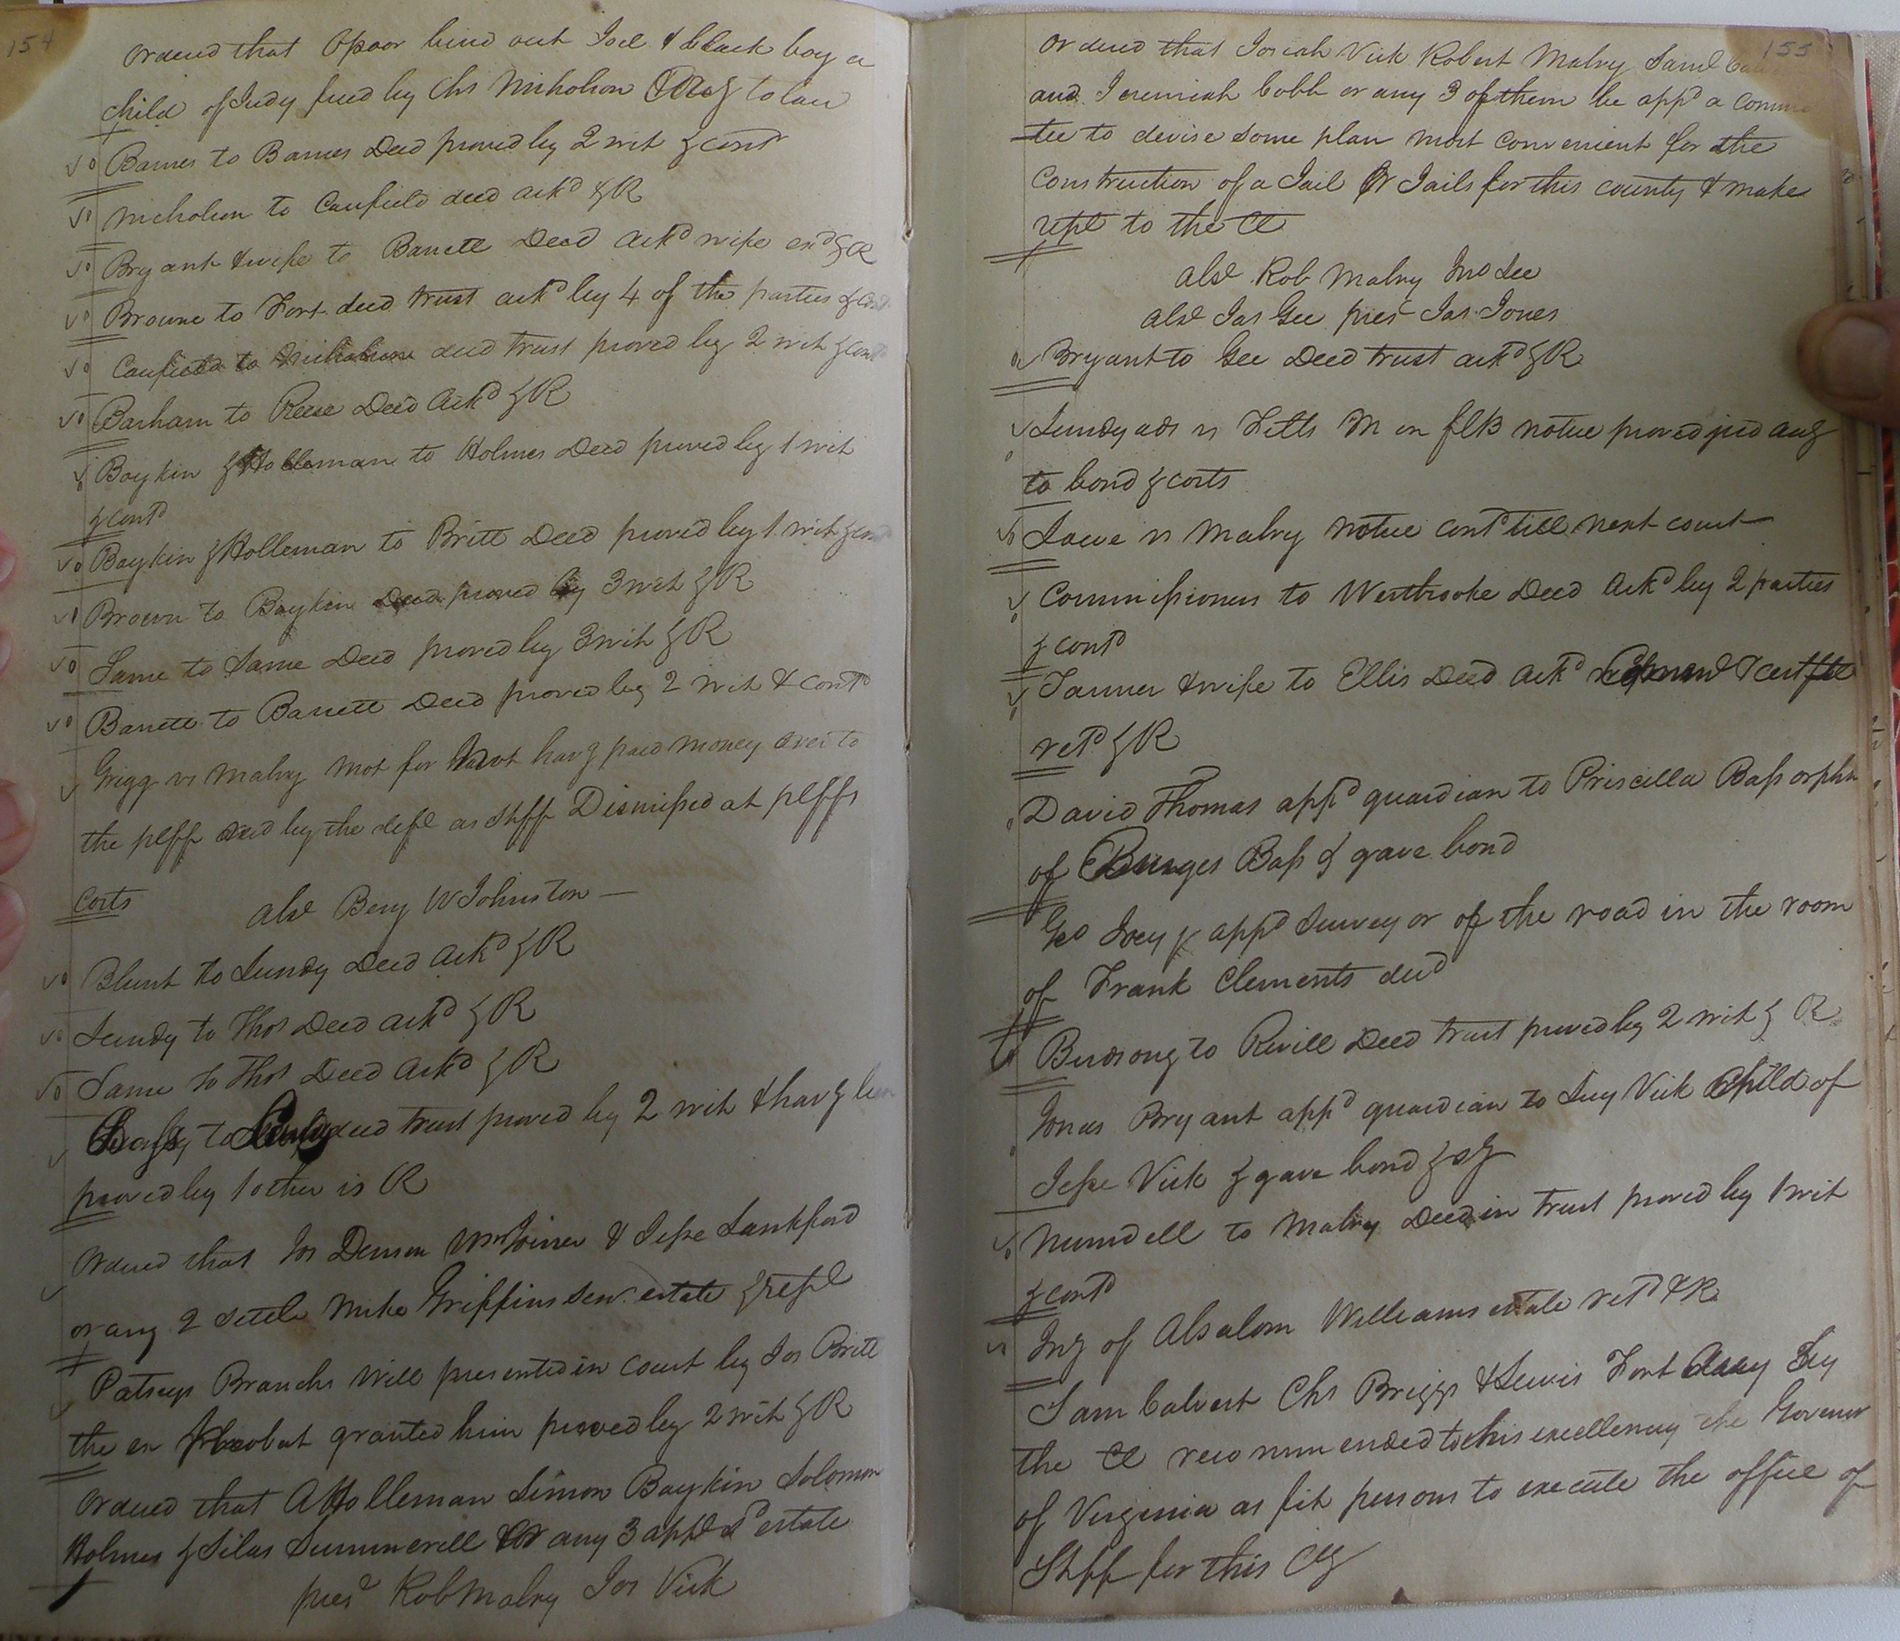 154
Ordered that Opoor bind out Joel & black boy a
child of Judy freed by Chs Nicholson to law
Barnes to Barnes Deed proved by 2 wit & contd
Nicholson to Canfield deed ackd & R
Bryant & wife to Barrett Deed Ackd wife exd & R
Browne to Fort deed trust ackd by 4 of the parties &
Canfield to Nicholson deed trust proved by 2 wit & contd
Barham to Reese Deed Ackd & R
Boykin & Holleman to Holmes Deed proved by 1 wit
& contd
Boykin & Holleman to Britt Deed proved by 1 wit & contd
Brown to Boykin Deed proved by 3 wit & R
Same to Same Deed proved by 3 wit & R
Barrett to Barrett Deed proved by 2 wit & contd
Grigg vs Malry Mot for not havg paid money over to
the plff by the deft as Shff Dismissed at plffs
Costs
abst Benj W Johnston —
Blunt to Lundy Deed Ackd & R
Lundy to Thos Deed ackd & R
Same to Thos Deed Ackd & R
to deed trust proved by 2 wit & havg
proved by 1 other is R
Ordered that Jos Denson Wm Joiner & Jesse Lankford
or any 2 settle Mike Griffins senr estate & rept
Patseys Branchs Will presented in court by Jos Britt
the ex Probat granted him proved by 2 wit & R
Ordered that A Holleman Simon Boykin Solomon
Holmes & Silas Summerell or any 3 estate
presd Rob Malry Jos Vick
155
Ordered that Josiah Vick Robert Malry Saml
and Jeremiah Cobb or any 3 of them be appd a commi
tee to devise some plan most convenient for the
Construction of a Jail Or Jails for this county & make
rept to the Ct
abst Rob Malry Jno Lee
abst Jas Gee pres Jas Jones
Bryant to Gee Deed trust ackd & R
Lundy ads vs Fitts M on notice proved jud
to bond & costs
vs Malry notice contd till next court
Commissioners to Westbrooke Deed Ackd by 2 parties
& contd
Tanner & wife to Ellis Deed Ackd
retd & R
David Thomas appd guardian to Priscilla Bass orphn
of Burges Bass & gave bond
Geo Ivey appd Surveyor of the road in the room
of Frank Clements decd
Birdsong to Revill Deed trust proved by 2 wit & R
Jonas Bryant appd guardian to Lucy Vick Child of
Jesse Vick & gave bond &
Nunndell to Malry Deed in trust proved by 1 wit
& contd
Inv of Absalom Williams estate retd & R
Sam Calvert Chs Briggs & Lewis Fort by
the Ct recommended to his excellency the Governor
of Virginia as fit persons to execute the office of
Shff for this Cty